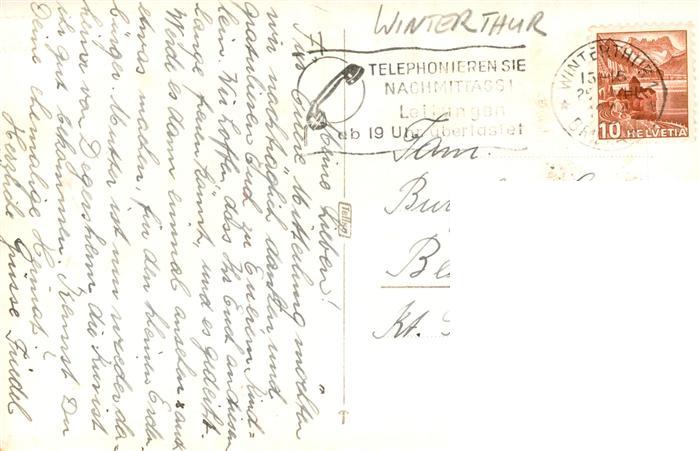 WINTERTHUR
TELEPHONIEREN SIE
NACHMITTAGS!
Leitungen
ab 19 Uhr überlastet
WINTERTHUR
10 HELVETIA
Fam.
Kt.
Tellko
Meine Lieben!
Für Eure Mitteilung möchten
wir nachträglich danken und
gratulieren Euch zu Eurem Kind-
lein. Wir hoffen dass Ihr Euch an diesem
lange freuen könnt, und es gedeiht.
Werde es dann einmal ansehen & auch
etwas malen, für den kleinen Erden-
bürger. Mutter ist nun wieder da-
heim von Degersheim, die Kur ist
ihr gut bekommen. Kennst Du
Deine ehemalige Heimat?
Herzliche Grüsse Friedel